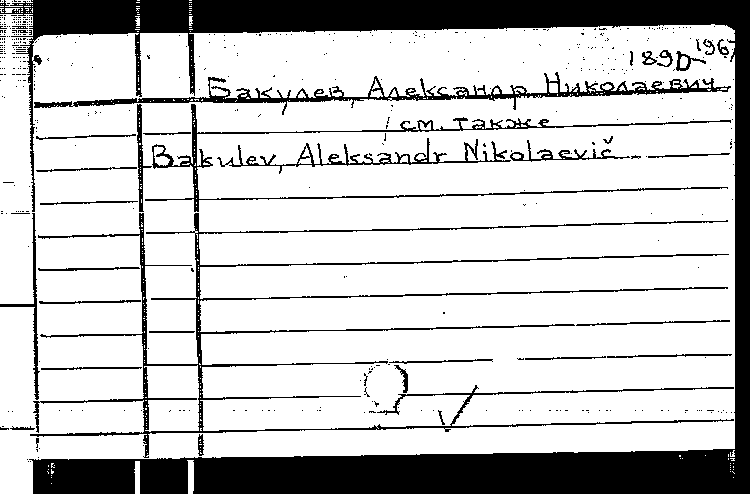 1890-1967
Бакулев, Александр Николаевич
см. также
Bakulev, Aleksandr Nikolaevič